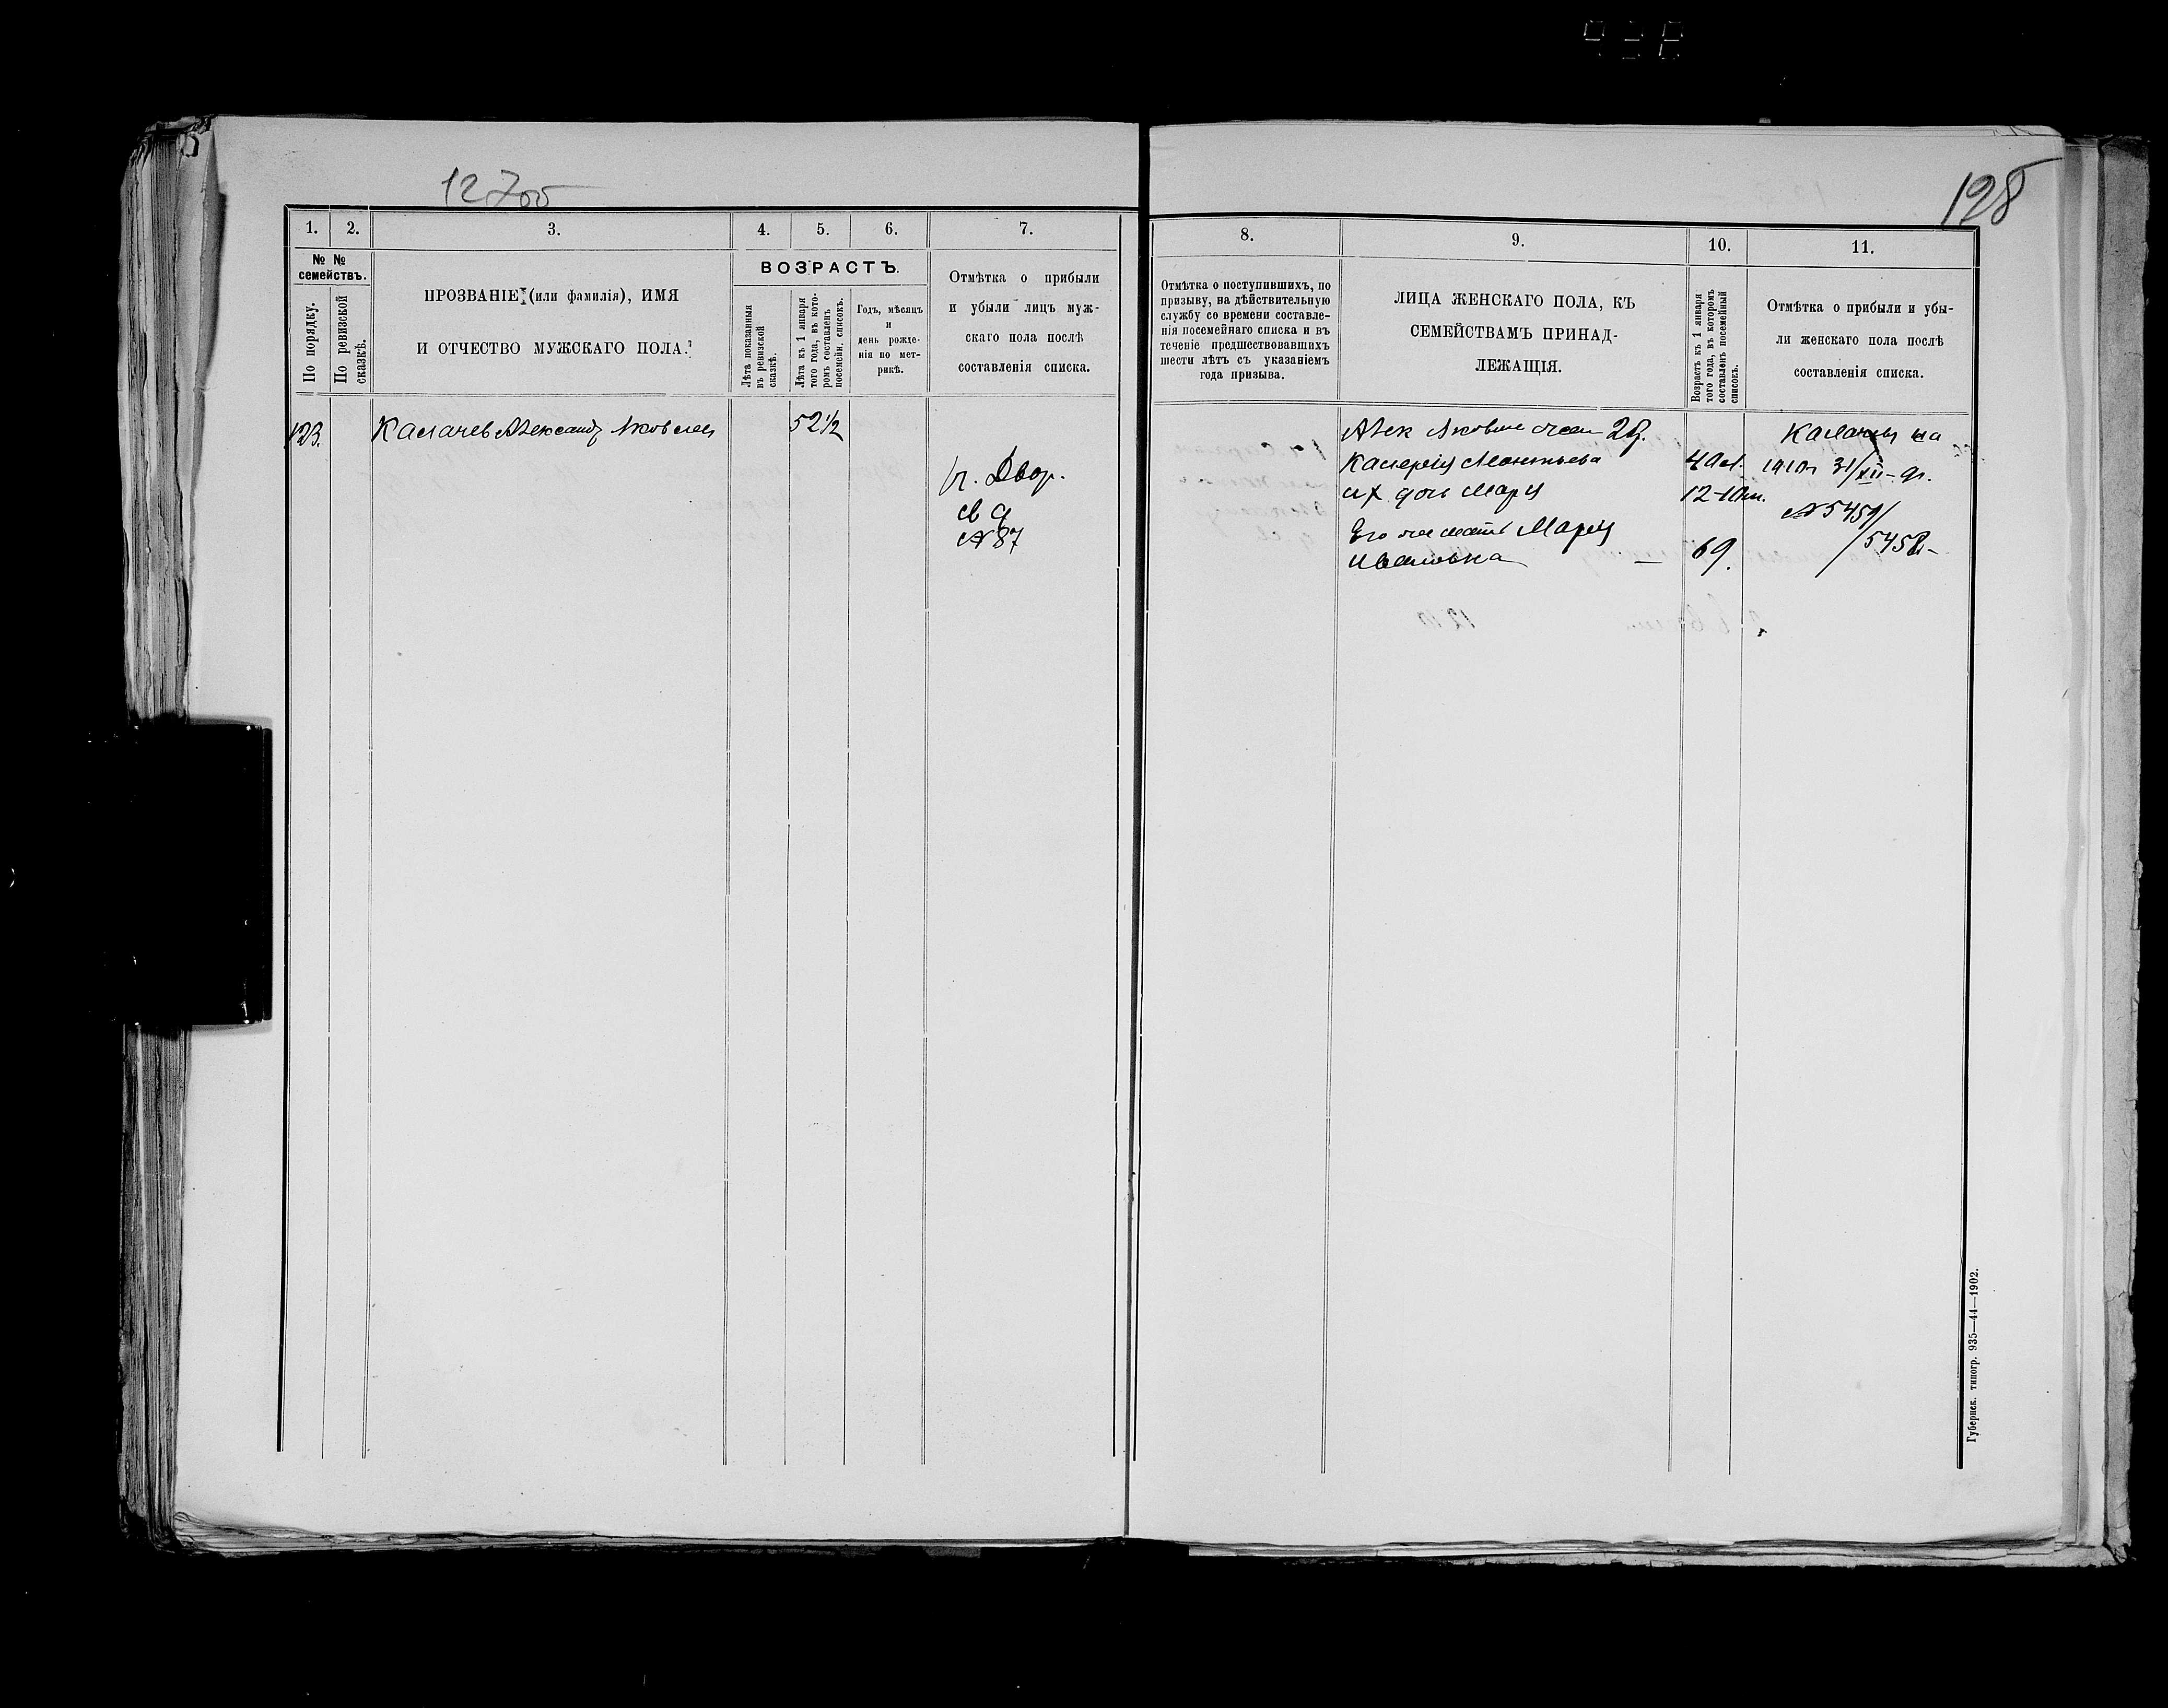 12700
128
1.
2.
3.
4.
5.
6.
7.
8.
9.
10.
11.
№ №
семействъ.
По порядку.
По ревизской
сказкѣ.
ПРОЗВАНІЕ (или фамилія), ИМЯ
И ОТЧЕСТВО МУЖСКАГО ПОЛА.
ВОЗРАСТЪ.
Лѣта показанныя
въ ревизской
сказкѣ.
Лѣта къ 1 января
того года, въ кото-
ромъ составленъ
посемейн. списокъ.
Годъ, мѣсяцъ
и
день рожде-
нія по мет-
рикѣ.
Отмѣтка о прибыли
и убыли лицъ муж-
скаго пола послѣ
составленія списка.
Отмѣтка о поступившихъ, по
призыву, на дѣйствительную
службу со времени составле-
нія посемейнаго списка и въ
теченіе предшествовавшихъ
шести лѣтъ съ указаніемъ
года призыва.
ЛИЦА ЖЕНСКАГО ПОЛА, КЪ
СЕМЕЙСТВАМЪ ПРИНАД-
ЛЕЖАЩІЯ.
Возрастъ къ 1 января
того года, въ которомъ
составленъ посемейный
списокъ.
Отмѣтка о прибыли и убы-
ли женскаго пола послѣ
составленія списка.
123.
Калачев Александ Яковлев
52½
г. Двор.
№ 87
Алек Яковл
Калерія Леонтьева
их дочь Марія
12
Его мать Марія
Ивановна
69.
Калачевы на
31/XII
№ 5459/
/5458
Губернск. типогр. 935—44—1902.